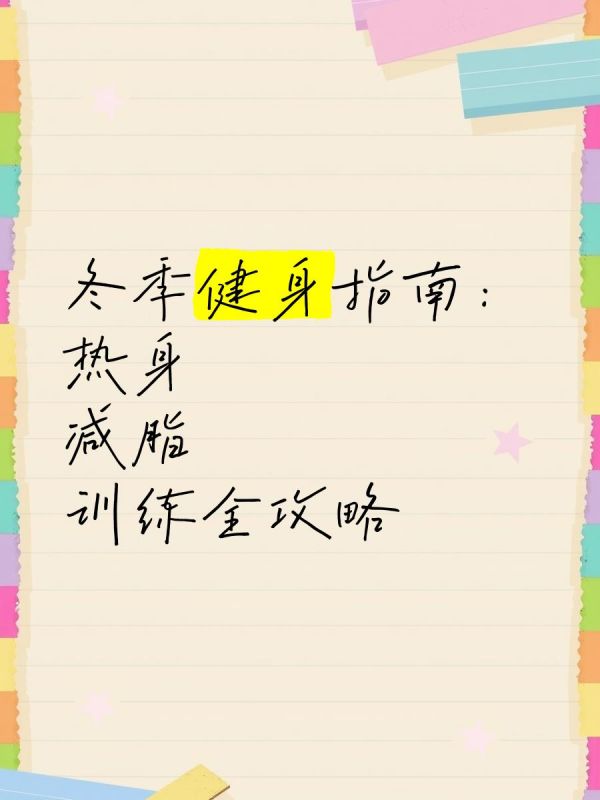 冬季健身指南：
热身
减脂
训练全攻略